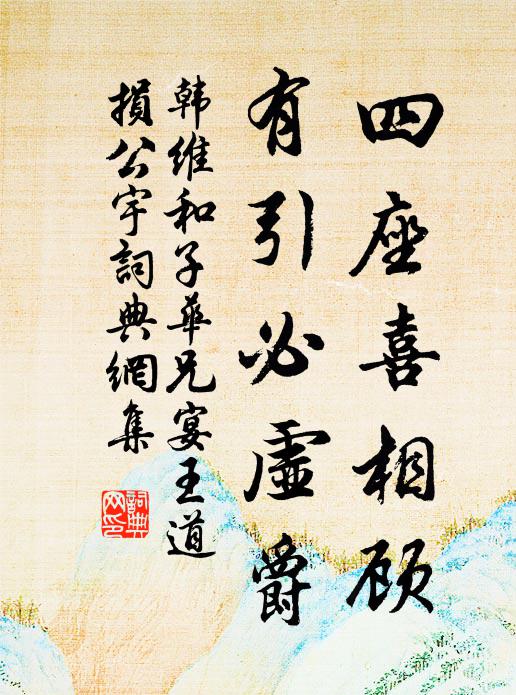 四座喜相顾
有引必虚爵
韩维和子华兄宴王道
损公宇词典網集
詞典网印